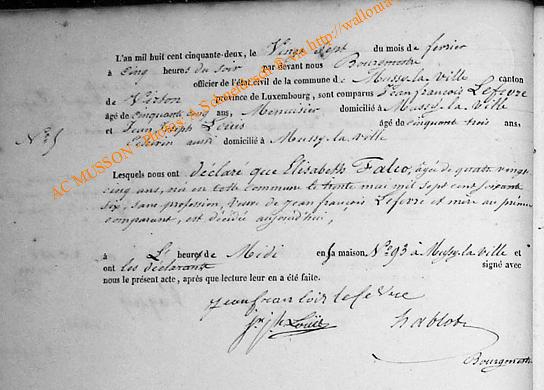 L'an mil huit cent cinquante-deux, le Vingt sept du mois de fevrier
à cinq heures du soir par devant nous Bourgmestre
officier de l'état civil de la commune de Mussy-la-ville canton
de Virton province de Luxembourg, sont comparus Jean françois Lefevre
âgé de cinquante cinq ans, Menuisier domicilié à Mussy-la-ville
N° 5 et Jean Joseph Louis âgé de cinquante trois ans,
aussi domicilié à Mussy-la-ville
Lesquels nous ont déclaré que Elisabeth Falco, agée de quatre vingt
cinq ans, née en cette commune le trente mai mil sept cent soixante
six, sans profession, veuve de jean françois Lefevre et mere au premier
comparant, est décédée aujourd'hui,
à heures de Midi en sa maison N° 93 à Mussy-la-ville et
ont les déclarants signé avec
nous le présent acte, après que lecture leur en a été faite.
jean fran cois lefevre
Louis
hablot
Bourgmestre
AC MUSSON - Photos A Schneidesch © via http://wallonia